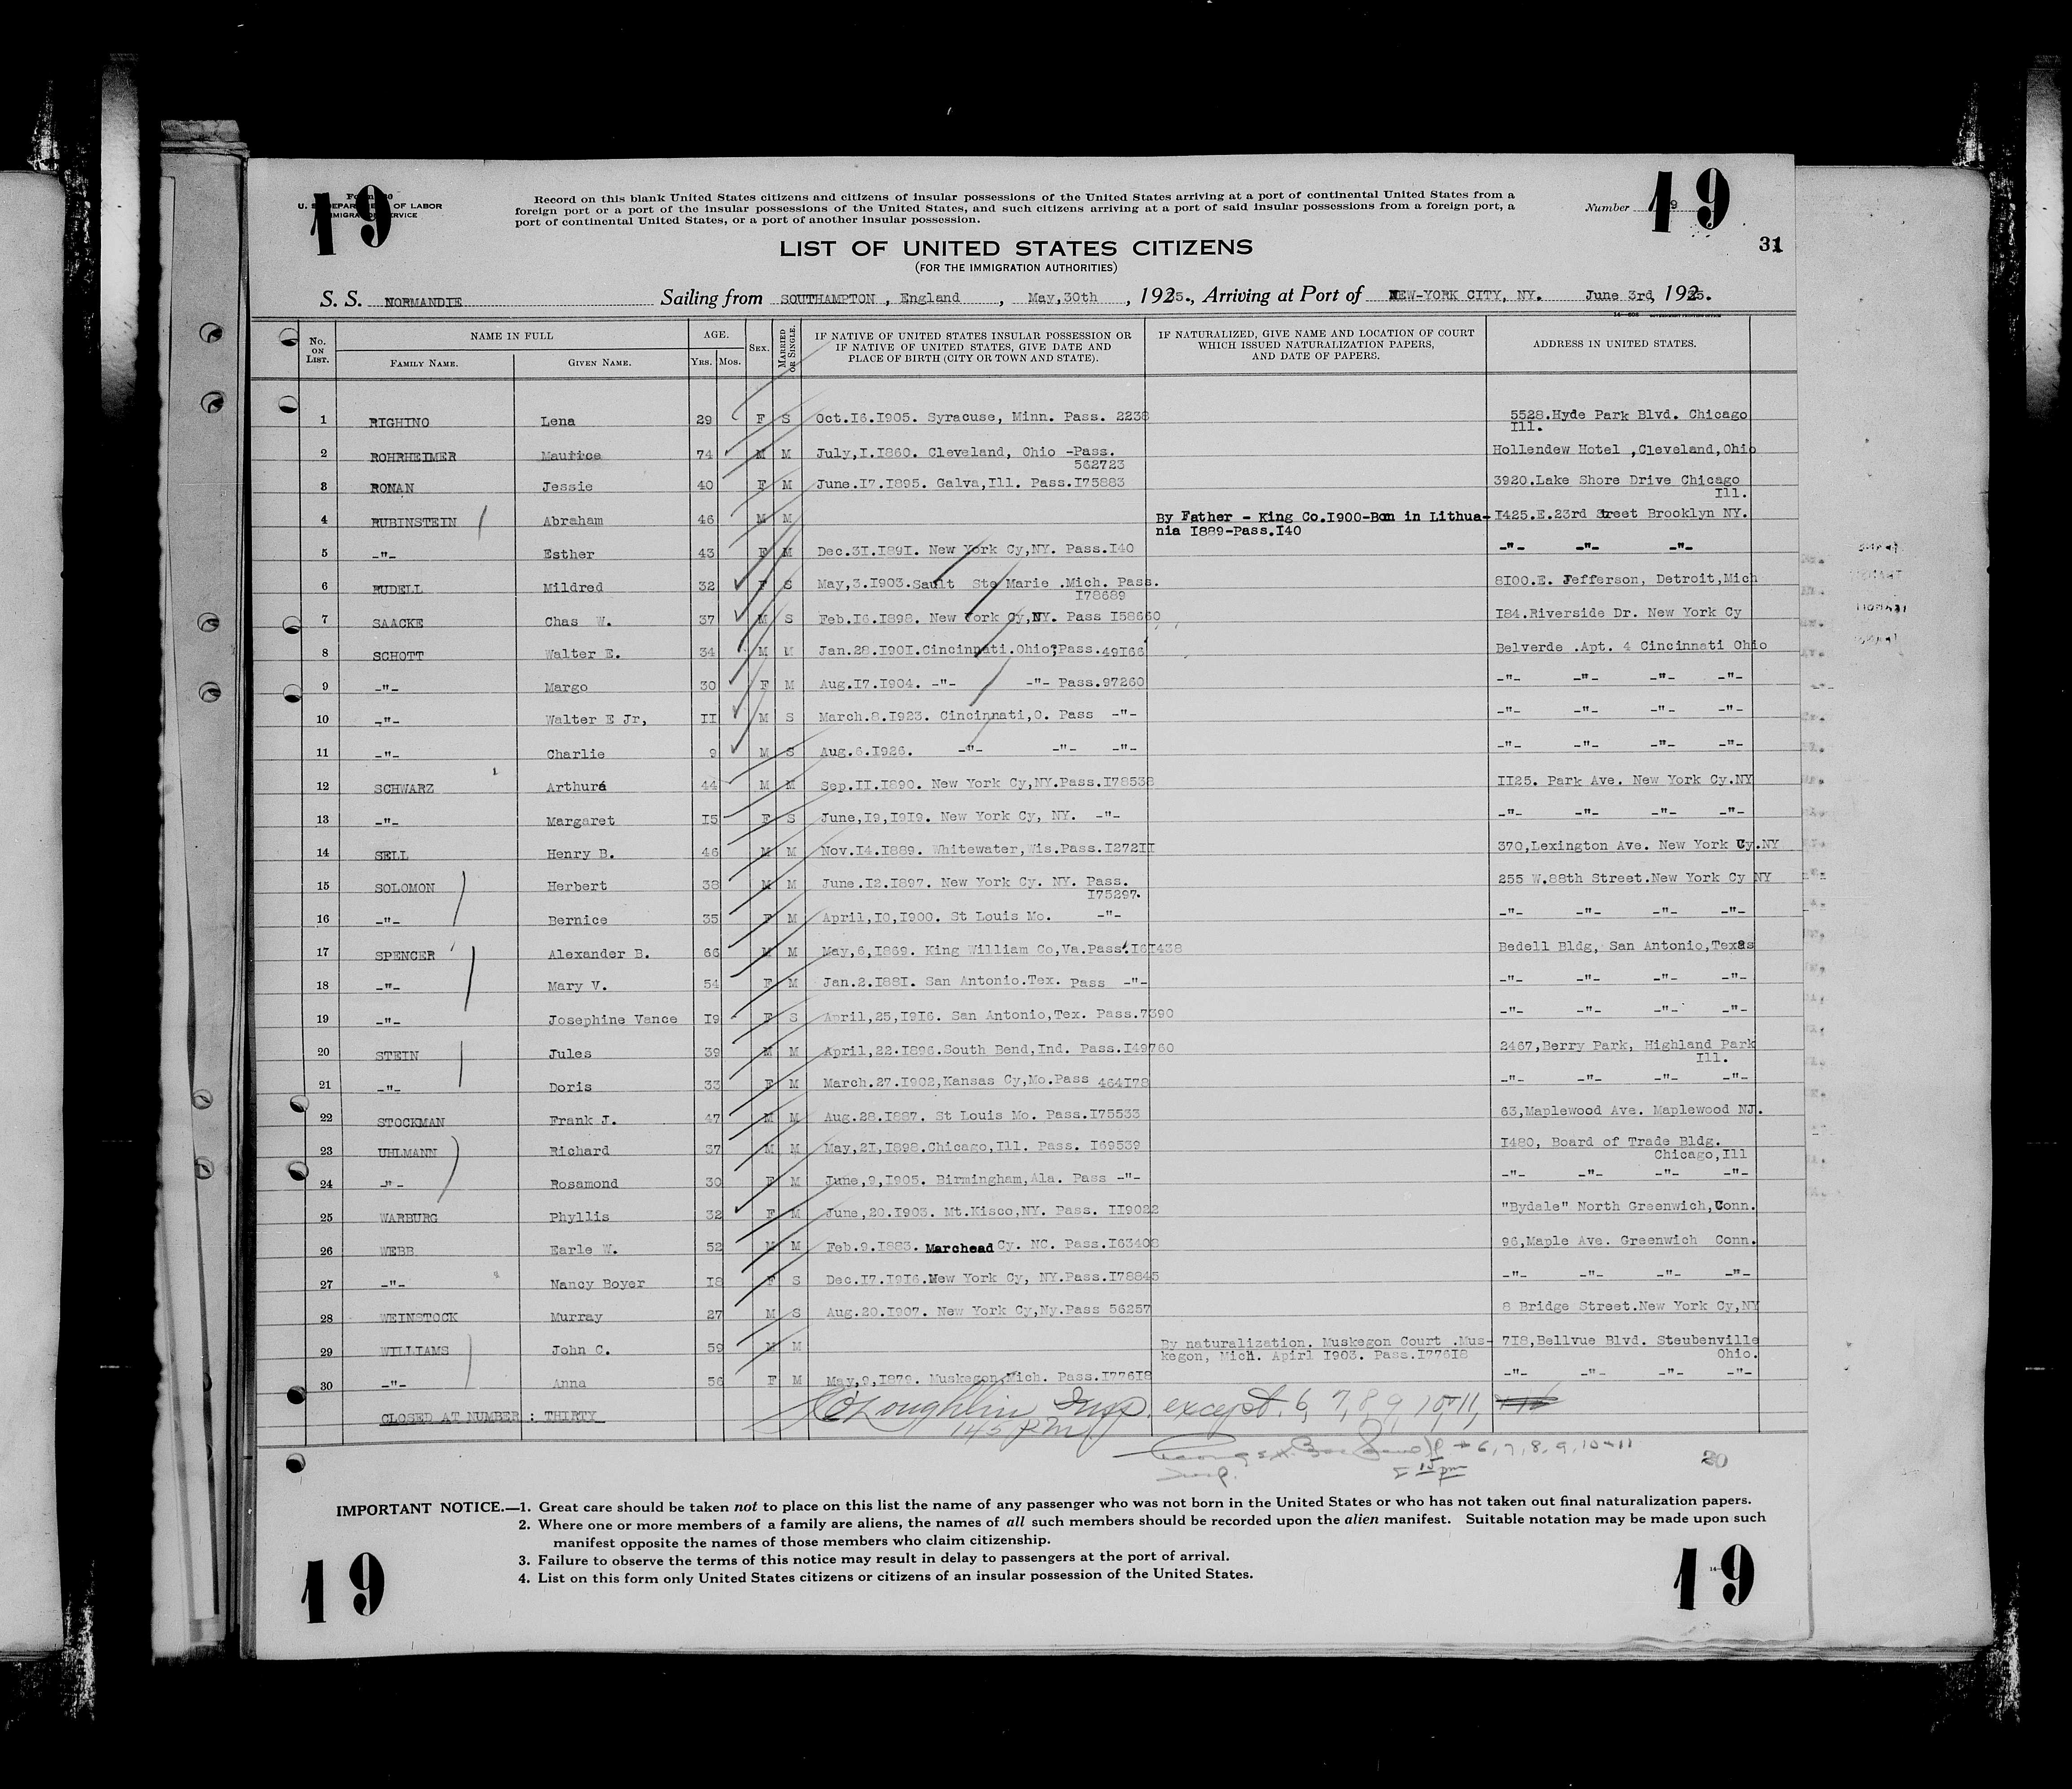 19 19
U. S. DEPARTMENT OF LABOR
IMMIGRATION SERVICE
Record on this blank United States citizens and citizens of insular possessions of the United States arriving at a port of continental United States from a
foreign port or a port of the insular possessions of the United States, and such citizens arriving at a port of said insular possessions from a foreign port, a
port of continental United States, or a port of another insular possession.
Number 19
31
LIST OF UNITED STATES CITIZENS
(FOR THE IMMIGRATION AUTHORITIES)
S. S. NORMANDIE Sailing from SOUTHAMPTON , England , May,30th , 1935., Arriving at Port of NEW-YORK CITY, NY. June 3rd, 1935.
No. on List. NAME IN FULL AGE. Sex. Married or Single. IF NATIVE OF UNITED STATES INSULAR POSSESSION OR IF NATIVE OF UNITED STATES, GIVE DATE AND PLACE OF BIRTH (CITY OR TOWN AND STATE). IF NATURALIZED, GIVE NAME AND LOCATION OF COURT WHICH ISSUED NATURALIZATION PAPERS, AND DATE OF PAPERS. ADDRESS IN UNITED STATES.
Family Name. Given Name. Yrs. Mos.
1 RIGHINO Lena 29 F S Oct.I6.I905. Syracuse, Minn. Pass. 2238 5528.Hyde Park Blvd. Chicago
Ill.
2 ROHRHEIMER Maurice 74 M M July,I.I860. Cleveland, Ohio -Pass. Hollendew Hotel ,Cleveland,Ohio
562723
3 RONAN Jessie 40 F M June.I7.I895. Galva,Ill. Pass.I75883 3920.Lake Shore Drive Chicago
Ill.
4 RUBINSTEIN Abraham 46 M M By Father - King Co.I900-Bon in Lithua- I425.E.23rd Street Brooklyn NY.
nia I889-Pass.I40
5 -"- Esther 43 F M Dec.3I.I89I. New York Cy,NY. Pass.I40 -"- -"- -"-
6 RUDELL Mildred 32 F S May,3.I903.Sault Ste Marie .Mich. Pass. 8I00.E. Jefferson, Detroit,Mich
I78689
7 SAACKE Chas W. 37 M S Feb.I6.I898. New York Cy,NY. Pass I58660 I84.Riverside Dr. New York Cy
8 SCHOTT Walter E. 34 M M Jan.28.I90I.Cincinnati.Ohio;Pass.49I66 Belverde .Apt. 4 Cincinnati Ohio
9 -"- Margo 30 F M Aug.I7.I904. -"- -"- Pass.97260 -"- -"- -"- -"-
10 -"- Walter E Jr, II M S March.8.I923. Cincinnati,O. Pass -"- -"- -"- -"- -"-
11 -"- Charlie 9 M S Aug.6.I926. -"- -"- -"- -"- -"- -"- -"-
12 SCHWARZ Arthur 44 M M Sep.II.I890. New York Cy,NY.Pass.I78538 II25. Park Ave. New York Cy.NY
13 -"- Margaret I5 F S June,I9,I9I9. New York Cy, NY. -"- -"- -"- -"- -"-
14 SELL Henry B. 46 M M Nov.I4.I889. Whitewater,Wis.Pass.I272II 370,Lexington Ave. New York Cy.NY
15 SOLOMON Herbert 38 M M June.I2.I897. New York Cy. NY. Pass. 255 W.88th Street.New York Cy NY
I75297.
16 -"- Bernice 35 F M April,I0,I900. St Louis Mo. -"- -"- -"- -"- -"-
17 SPENCER Alexander B. 66 M M May,6,I869. King William Co,Va.Pass.I6I438 Bedell Bldg, San Antonio,Texas
18 -"- Mary V. 54 F M Jan.2.I88I. San Antonio.Tex. Pass -"- -"- -"- -"- -"-
19 -"- Josephine Vance I9 F S April,25,I9I6. San Antonio,Tex. Pass.7390 -"- -"- -"- -"-
20 STEIN Jules 39 M M April,22.I896.South Bend,Ind. Pass.I49760 2467,Berry Park, Highland Park
Ill.
21 -"- Doris 33 F M March.27.I902,Kansas Cy,Mo.Pass 464I78 -"- -"- -"- -"-
22 STOCKMAN Frank J. 47 M M Aug.28.I887. St Louis Mo. Pass.I75533 63,Maplewood Ave. Maplewood NJ.
23 UHLMANN Richard 37 M M May,2I,I898.Chicago,Ill. Pass. I69539 I480, Board of Trade Bldg.
Chicago,Ill
24 -"- Rosamond 30 F M June,9,I905. Birmingham,Ala. Pass -"- -"- -"- -"- -"-
25 WARBURG Phyllis 32 F M June,20.I903. Mt.Kisco,NY. Pass. II9022 "Bydale" North Greenwich,Conn.
26 WEBB Earle W. 52 M M Feb.9.I883. Marchead Cy. NC. Pass.I63408 96,Maple Ave. Greenwich Conn.
27 -"- Nancy Boyer I8 F S Dec.I7.I9I6.New York Cy, NY.Pass.I78845 -"- -"- -"- -"-
28 WEINSTOCK Murray 27 M S Aug.20.I907. New York Cy,Ny.Pass 56257 8 Bridge Street.New York Cy,NY
29 WILLIAMS John C. 59 M M By naturalization. Muskegon Court .Mus- 7I8,Bellvue Blvd. Steubenville
kegon, Mich. Apirl I903. Pass.I776I8 Ohio.
30 -"- Anna 56 F M May,9,I879. Muskegon,Mich. Pass.I776I8 -"- -"- -"- -"-
CLOSED AT NUMBER : THIRTY
O'Loughlin Insp. except. 6, 7, 8, 9, 10, 11,
145 pm
6, 7, 8, 9, 10 - 11
Insp. 5 15 pm
30
IMPORTANT NOTICE.—1. Great care should be taken not to place on this list the name of any passenger who was not born in the United States or who has not taken out final naturalization papers.
2. Where one or more members of a family are aliens, the names of all such members should be recorded upon the alien manifest. Suitable notation may be made upon such
manifest opposite the names of those members who claim citizenship.
3. Failure to observe the terms of this notice may result in delay to passengers at the port of arrival.
4. List on this form only United States citizens or citizens of an insular possession of the United States.
19 19